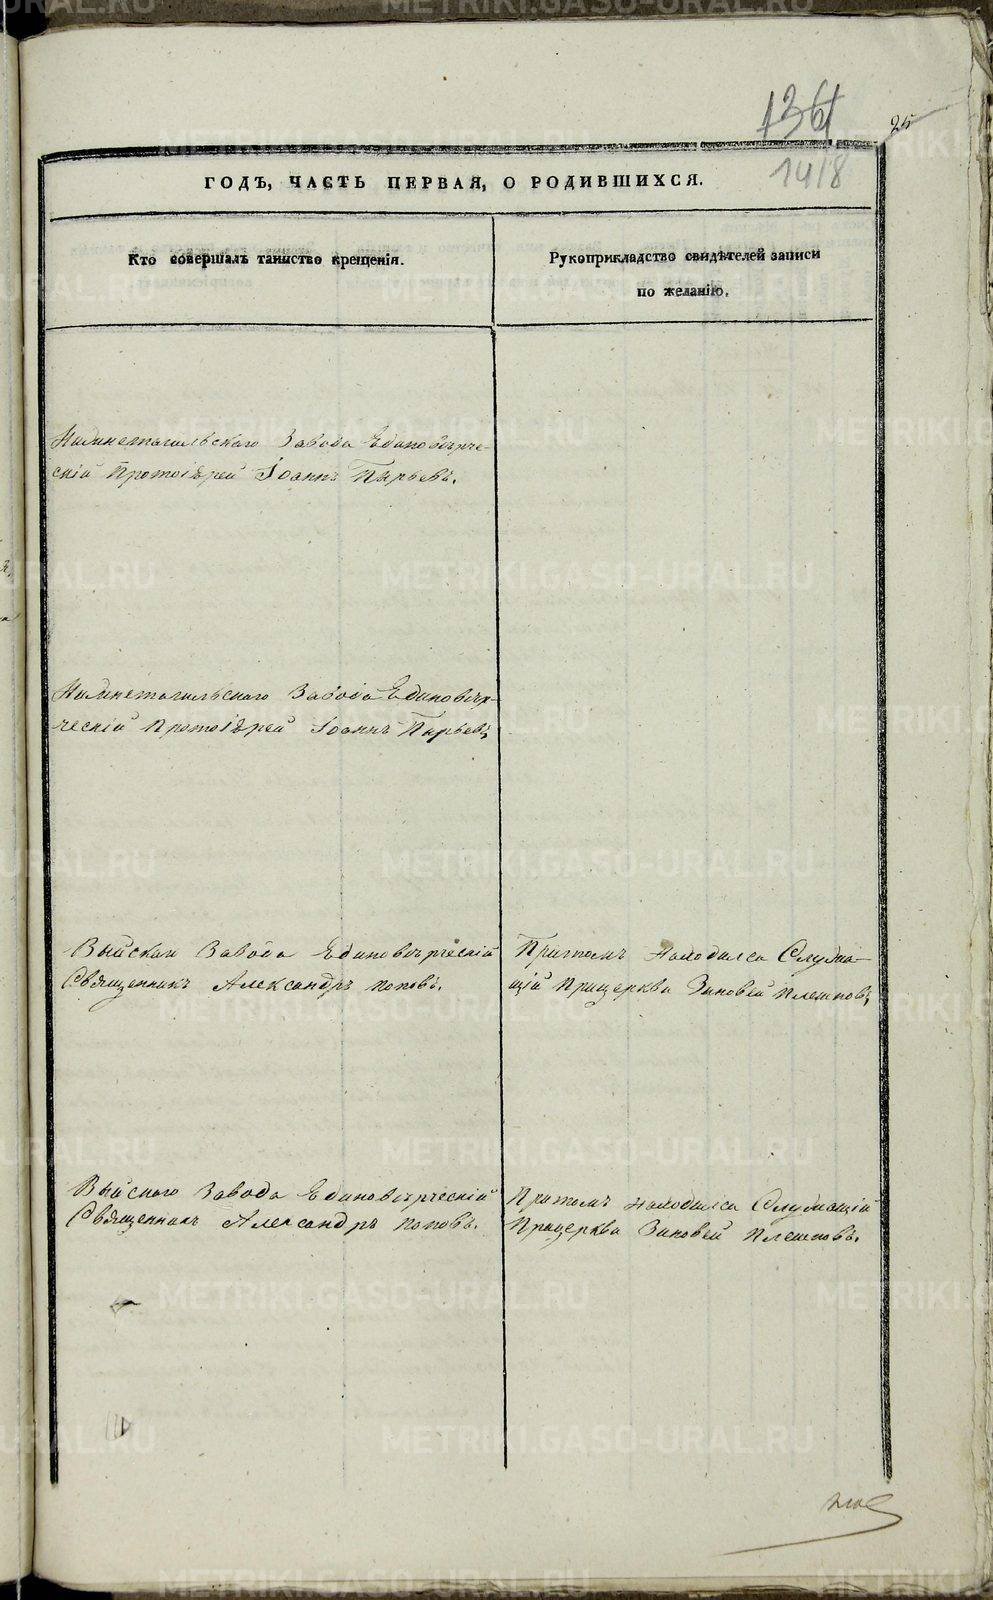 136
25
1418
ГОДЪ, ЧАСТЬ ПЕРВАЯ, О РОДИВШИХСЯ.
Кто совершалъ таинство крещенія.
Рукоприкладство свидѣтелей записи
по желанію.
Нижнетагильскаго Завода Единовѣрче-
скій Протоіерей Іоаннъ Пырьевъ.
Нижнетагильскаго Завода Единовѣр-
ческій Протоіерей Іоаннъ Пырьевъ,
Выйскаго Завода Единовѣрческій
Священникъ Александръ Поповъ.
Притомъ находился Служа-
щій Прицерква Зиновей Плешковъ,
Выйскаго Завода Единовѣрческій
Священникъ Александръ Поповъ.
Притомъ находился Служащій
Прицерква Зиновей Плешковъ.
METRIKI.GASO-URAL.RU